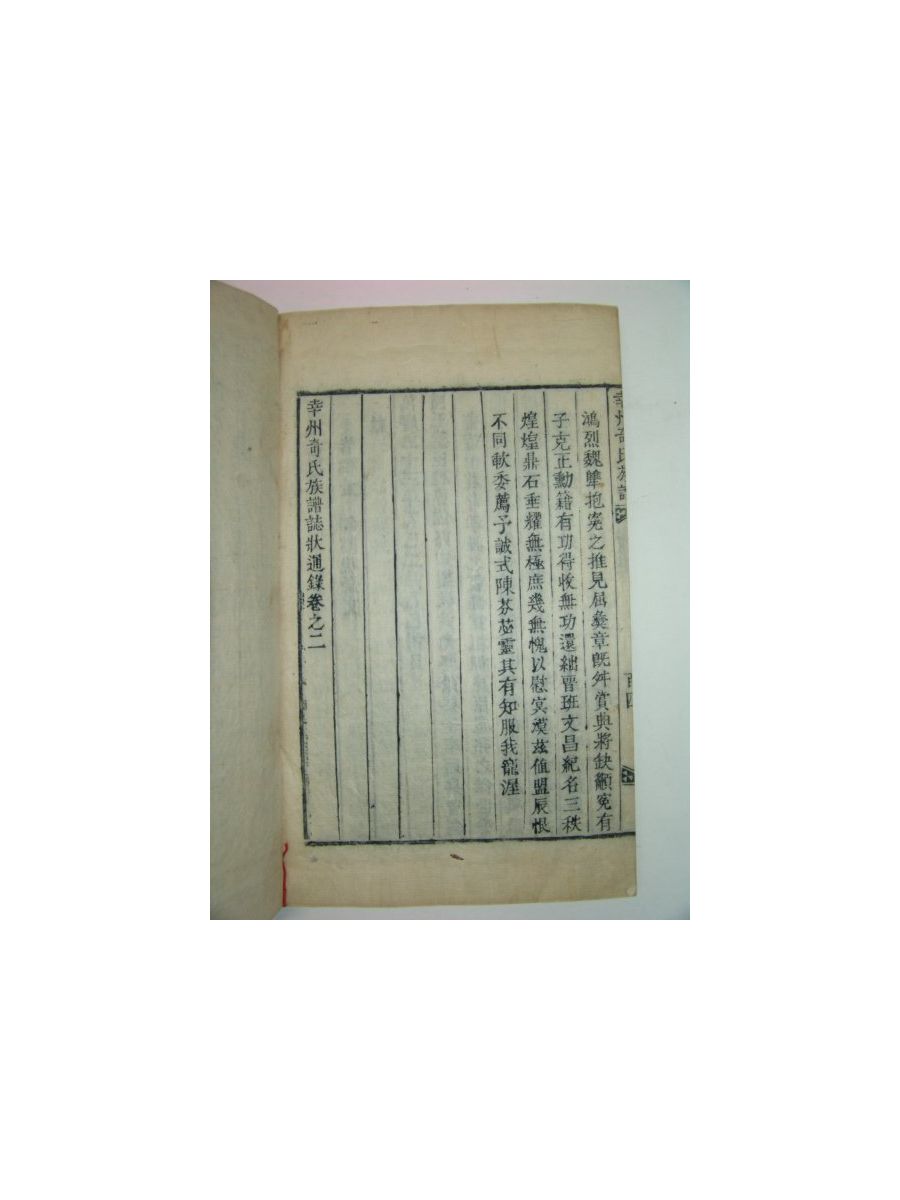 幸州奇氏族譜
百四
鴻烈魏犨抱寃之推見屈彜章旣舛賞典將缺籲寃有
子克正勳籍有功得收無功還絀晋班文昌紀名三秩
煌煌鼎石垂耀無極庶幾無愧以慰冥漠玆值盟辰恨
不同歃委薦予誠式陳芬苾靈其有知服我寵渥
幸州奇氏族譜誌狀通錄卷之二